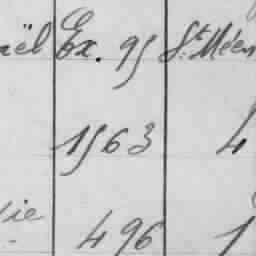 aël Ex. 95 St Méen
1563 4
sie 496 1